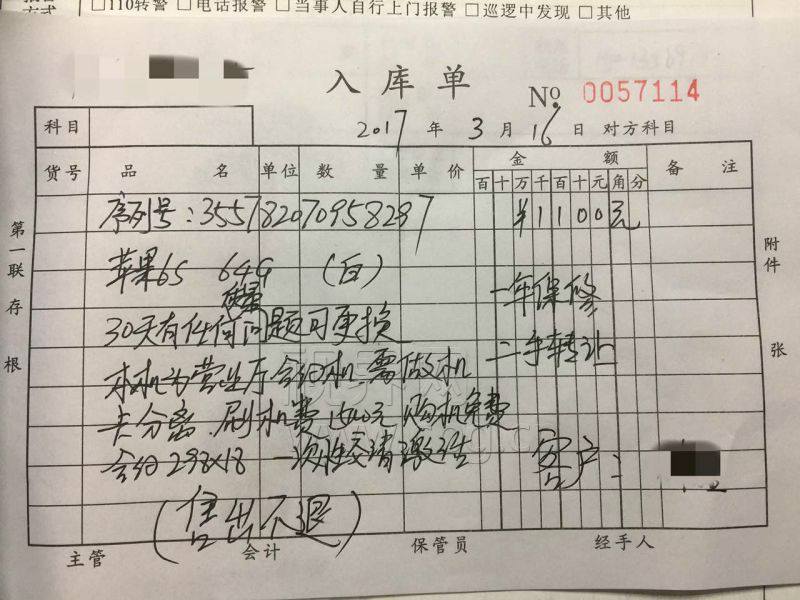 方式 □110转警 □电话报警 □当事人自行上门报警 □巡逻中发现 □其他
入库单
No 0057114
科目 2017年3月16日 对方科目
货号 品名 单位 数量 单价 金额 备注
百十万千百十元角分
序列号:355782070958287 ¥1100元
苹果6S 64G (白)
一年保修
质量
30天有任何问题可更换
二手转让
本机为营业厅合约机.需做机
卡分离.刷机费1500元 购机免费
合约298×18 一次性交清
客户:
(售出不退)
第一联存根
附件 张
主管 会计 保管员 经手人